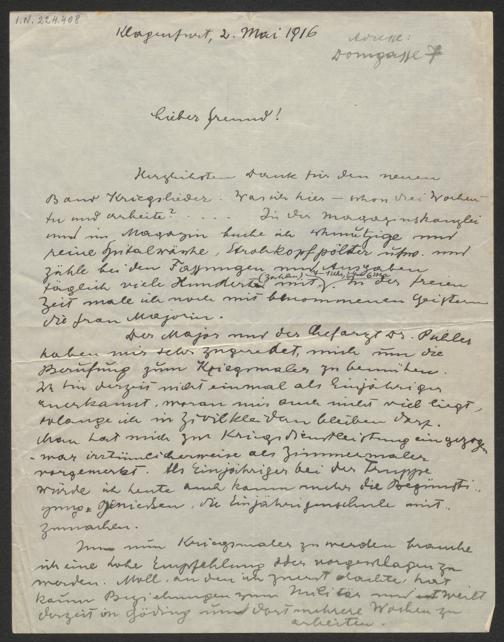 I.N. 224.408
Klagenfurt, 2. Mai 1916
Adresse:
Domgasse 7
Lieber Freund!
Herzlichsten Dank für den neuen
Band Kriegslieder. Was ich hier – schon drei Wochen
tu und arbeite? ..... In der Magazinskanzlei
und im Magazin buche ich schmutzige und
reine Spitalwäsche, Strohkopfpölster usw. und
zähle bei den Fassungen und Ausgaben
täglich viele Hunderte mit. In der freien
(zahlen)
Zeit male ich noch mit beklommenen Geistern
die Frau Majorin.
Der Major und der Chefarzt Dr. Puller
haben mir sehr zugeredet, mich um die
Berufung zum Kriegsmaler zu bemühen.
Ich bin derzeit nicht einmal als Einjähriger
anerkannt, woran mir auch nicht viel liegt,
solange ich in Zivilkleidern bleiben darf.
Man hat mich zur Kriegsdienstleistung eingezogen
- war irrtümlicherweise als Zimmermaler
vorgemerkt. Als Einjähriger bei der Truppe
würde ich heute auch kaum mehr die Begünsti-
gung genießen, die Einjährigenschule mit-
zumachen.
Um nun Kriegsmaler zu werden brauche
ich eine hohe Empfehlung oder vorgeschlagen zu
werden. Moll, an den ich zuerst dachte hat
kaum Beziehungen zum Militär und weilt
derzeit in Göding und dort mehrere Wochen zu
arbeiten.